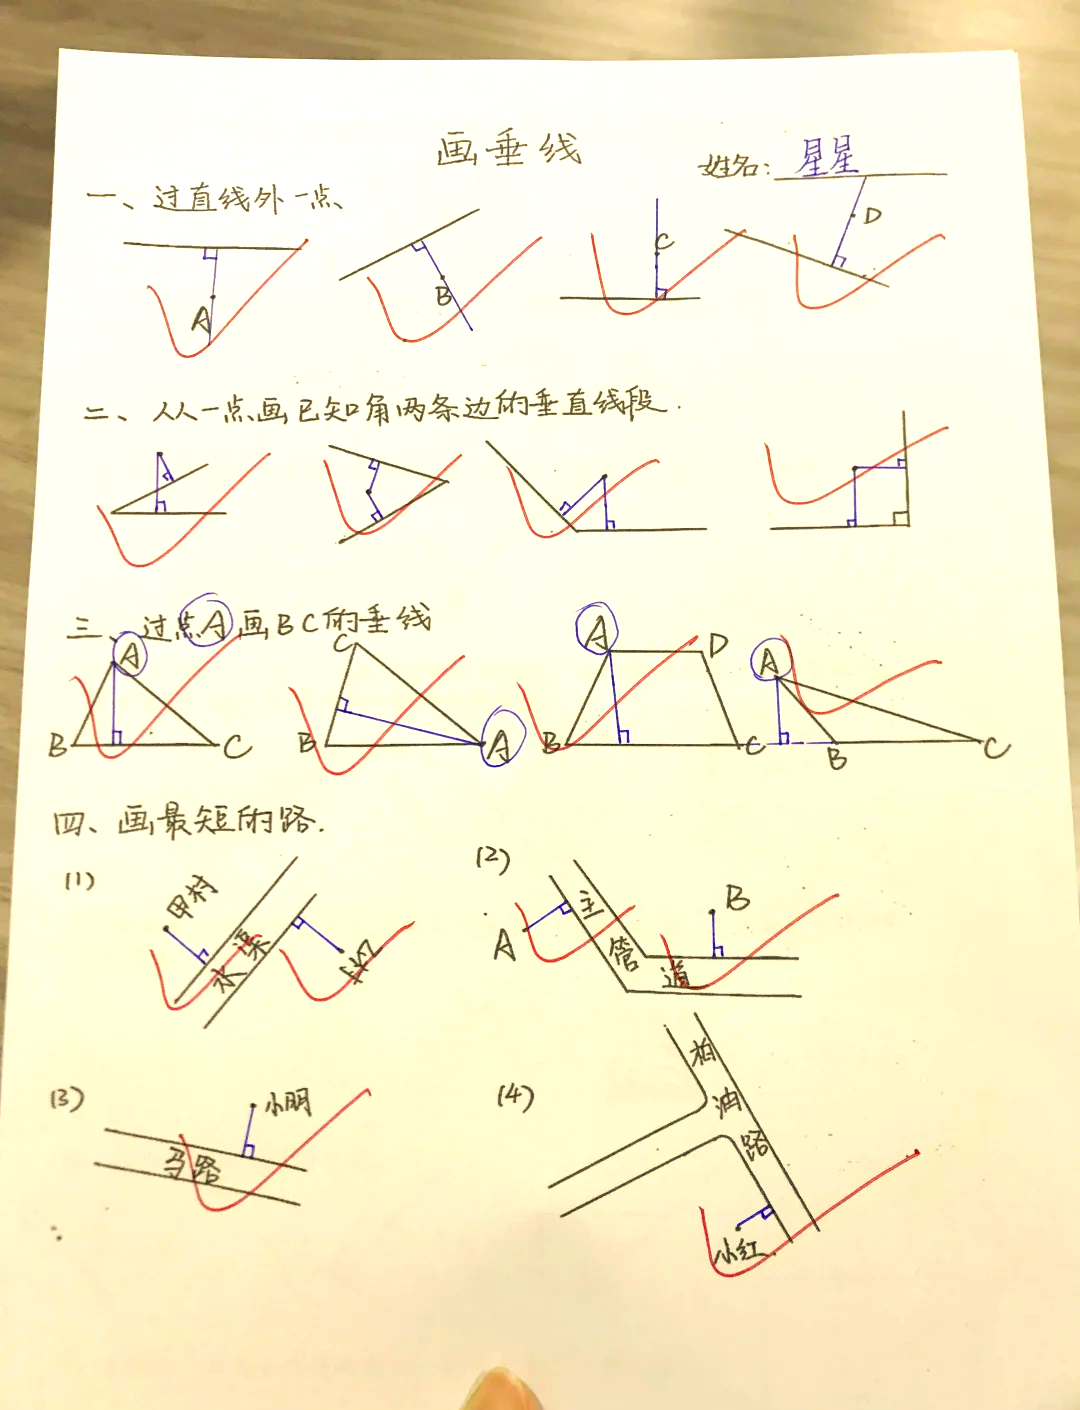 画垂线
姓名：星星
一、过直线外一点
A
B
C
D
二、从一点画已知角两条边的垂直线段.
三、过点A画BC的垂线
A
B
C
C
B
A
A
D
B
C
A
B
C
四、画最短的路.
(1)
甲村
水渠
(2)
A
主管道
B
(3)
小明
马路
(4)
柏油路
小红